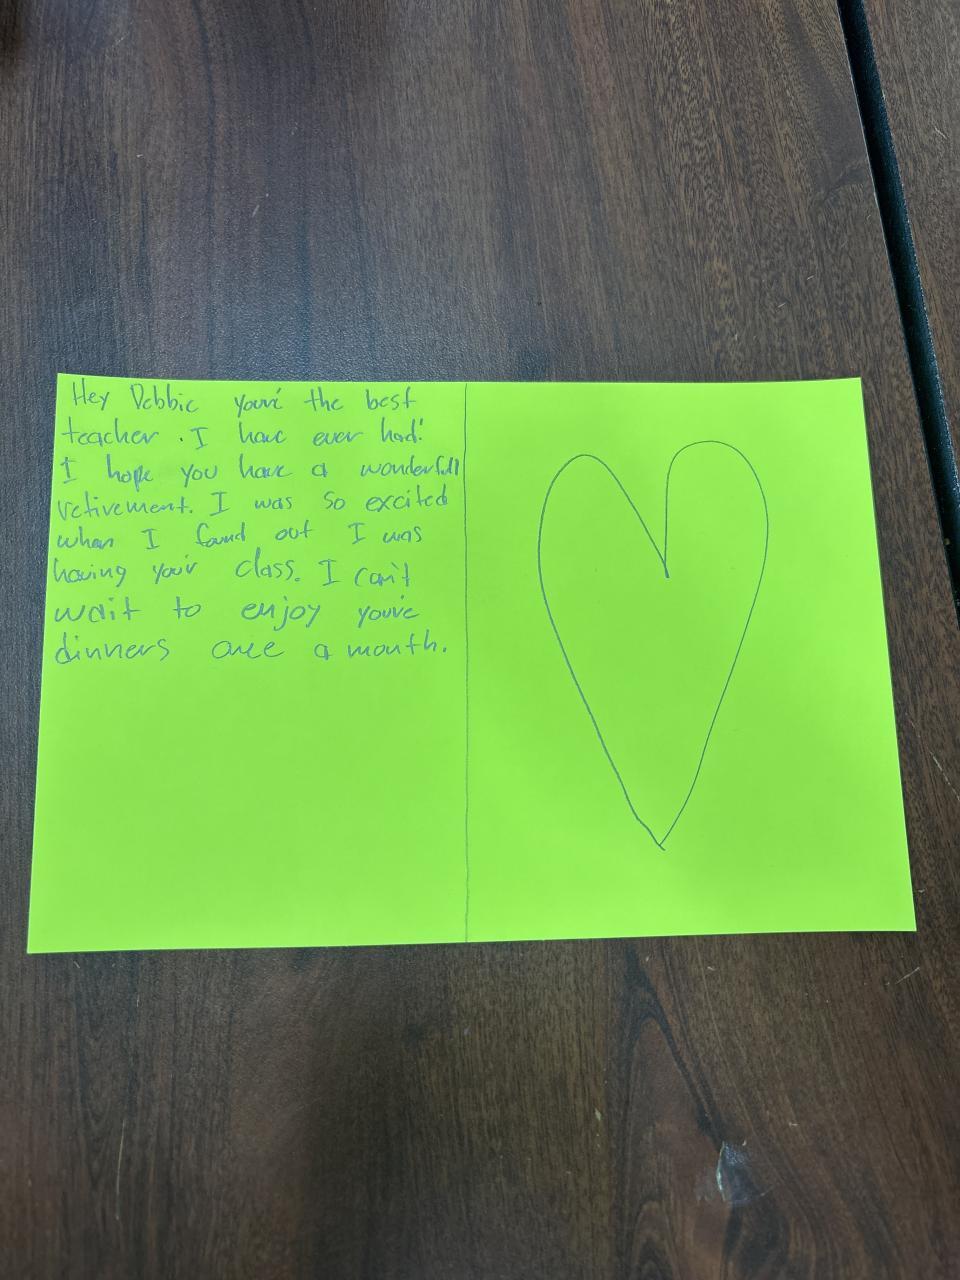 Hey Debbie you're the best
teacher . I have ever had!
I hope you have a wonderfull
retirement. I was so excited
when I found out I was
having your class. I can't
wait to enjoy you're
dinners once a month.